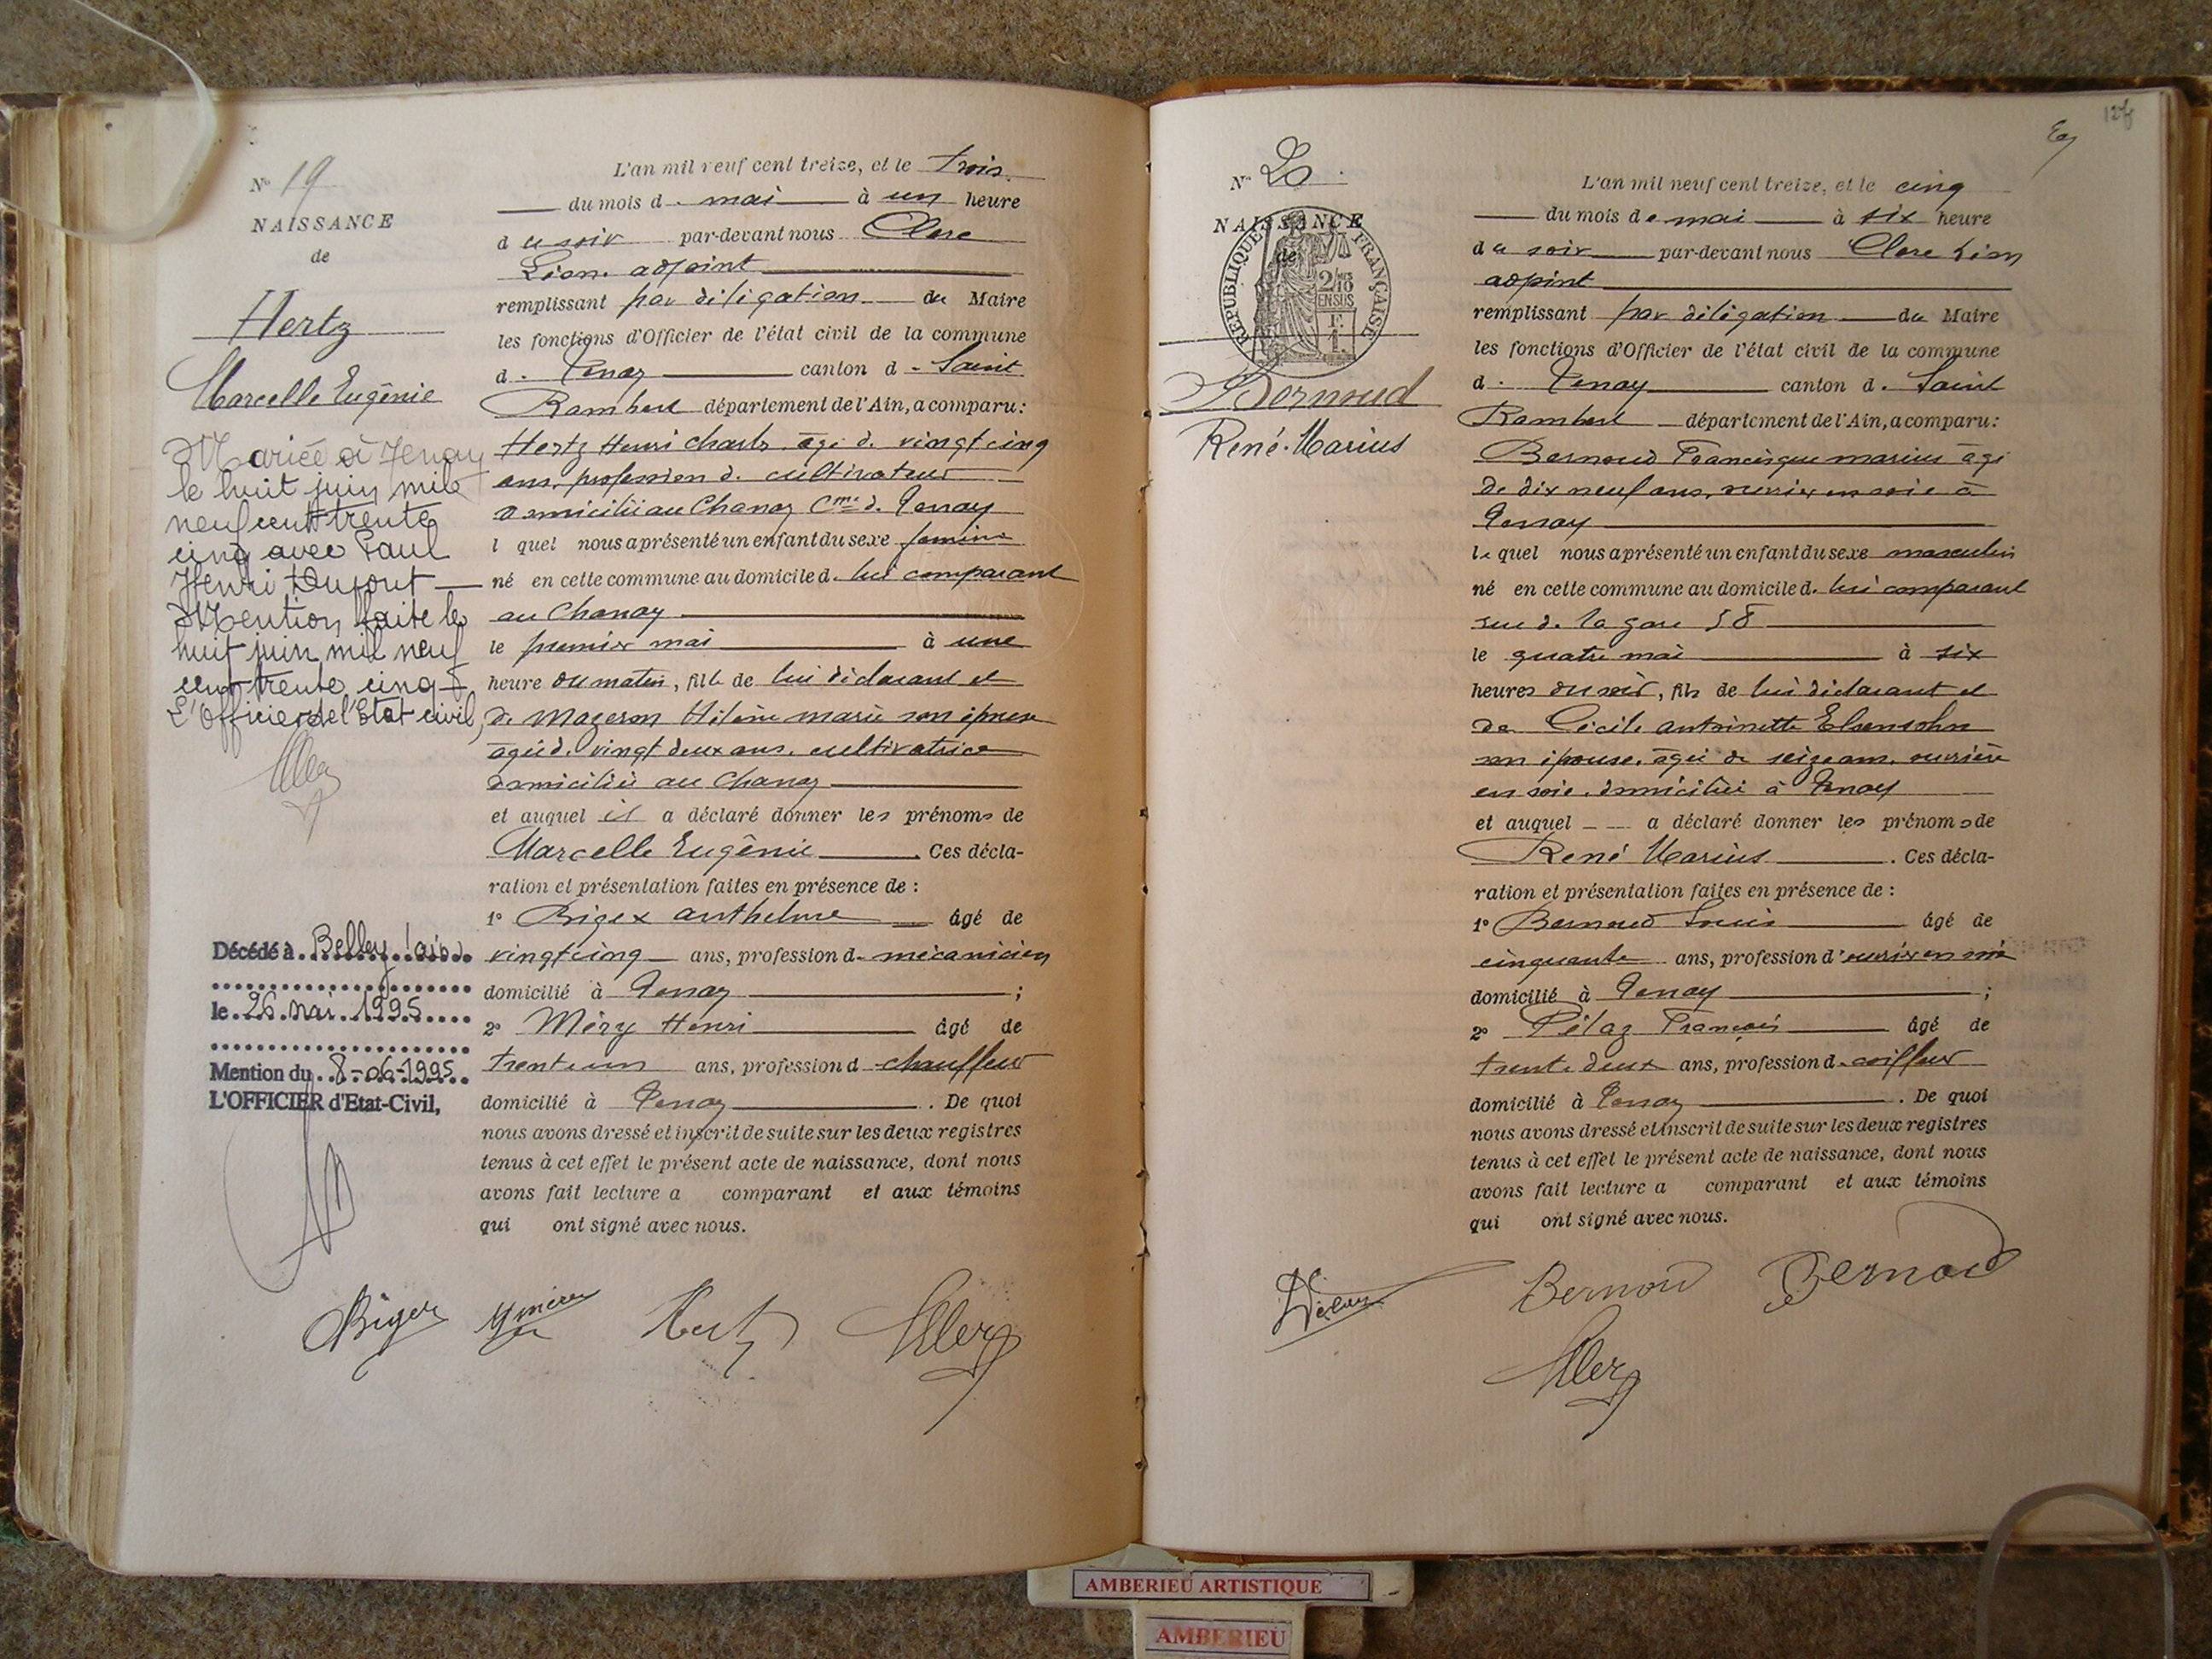 N° 19
NAISSANCE
de
Hertz
Marcelle Eugênie
Mariée à Tenay
le huit juin mil
neuf cent trente
cinq avec Paul
Henri Dupont
Mention faite le
huit juin mil neuf
cent trente cinq
L'Officier de l'Etat civil,
Décédé à Belley (ain)
le 26 mai 1995
Mention du 8-06-1995
L'OFFICIER d'Etat-Civil,
L'an mil neuf cent treize, et le trois
du mois d. mai à un heure
du soir par-devant nous Clerc
Léon. adjoint
remplissant par déligation du Maire
les fonctions d'Officier de l'état civil de la commune
d. Tenay canton d. Saint
Rambert département de l'Ain, a comparu:
Hertz Henri Charles âgé d. vingt cinq
ans, profession d. cultivateur
domicilié au Chanay Cne d. Tenay
l quel nous a présenté un enfant du sexe féminin
né en cette commune au domicile d. lui comparant
au Chanay
le premier mai à une
heure du matin, fille de lui déclarant et
de Mazeron Hélène marie son épouse
âgée d. vingt deux ans, cultivatrice
domiciliée au Chanay
et auquel il a déclaré donner les prénoms de
Marcelle Eugênie. Ces décla-
ration et présentation faites en présence de :
1° Bigex anthelme âgé de
vingt cinq ans, profession d. mécanicien
domicilié à Tenay ;
2° Méry Henri âgé de
trente un ans, profession d chauffeur
domicilié à Tenay. De quoi
nous avons dressé et inscrit de suite sur les deux registres
tenus à cet effet le présent acte de naissance, dont nous
avons fait lecture a comparant et aux témoins
qui ont signé avec nous.
Bigex Hertz
N° 20
NAISSANCE
de
RÉPUBLIQUE FRANÇAISE
Bernoud
René Marius
L'an mil neuf cent treize, et le cinq
du mois de mai à six heure
du soir par-devant nous Clerc Léon
adjoint
remplissant par déligation du Maire
les fonctions d'Officier de l'état civil de la commune
d. Tenay canton d. Saint
Rambert département de l'Ain, a comparu:
Bernoud Francisque marius âgé
de dix neuf ans, ouvrier en soie à
Tenay
le quel nous a présenté un enfant du sexe masculin
né en cette commune au domicile d. lui comparant
rue d. la gare 58
le quatre mai à six
heures du soir, fils de lui déclarant et
de Cécile antoinette Elsensohn
son épouse, âgée de seize ans, ouvrière
en soie, domiciliée à Tenay
et auquel a déclaré donner les prénoms de
René Marius. Ces décla-
ration et présentation faites en présence de :
1° Bernoud Louis âgé de
cinquante ans, profession d'ouvrier en soie
domicilié à Tenay ;
2° Pélaz François âgé de
trente deux ans, profession d. coiffeur
domicilié à Tenay. De quoi
nous avons dressé et inscrit de suite sur les deux registres
tenus à cet effet le présent acte de naissance, dont nous
avons fait lecture a comparant et aux témoins
qui ont signé avec nous.
Bernoud Bernoud
AMBERIEU ARTISTIQUE
AMBERIEU